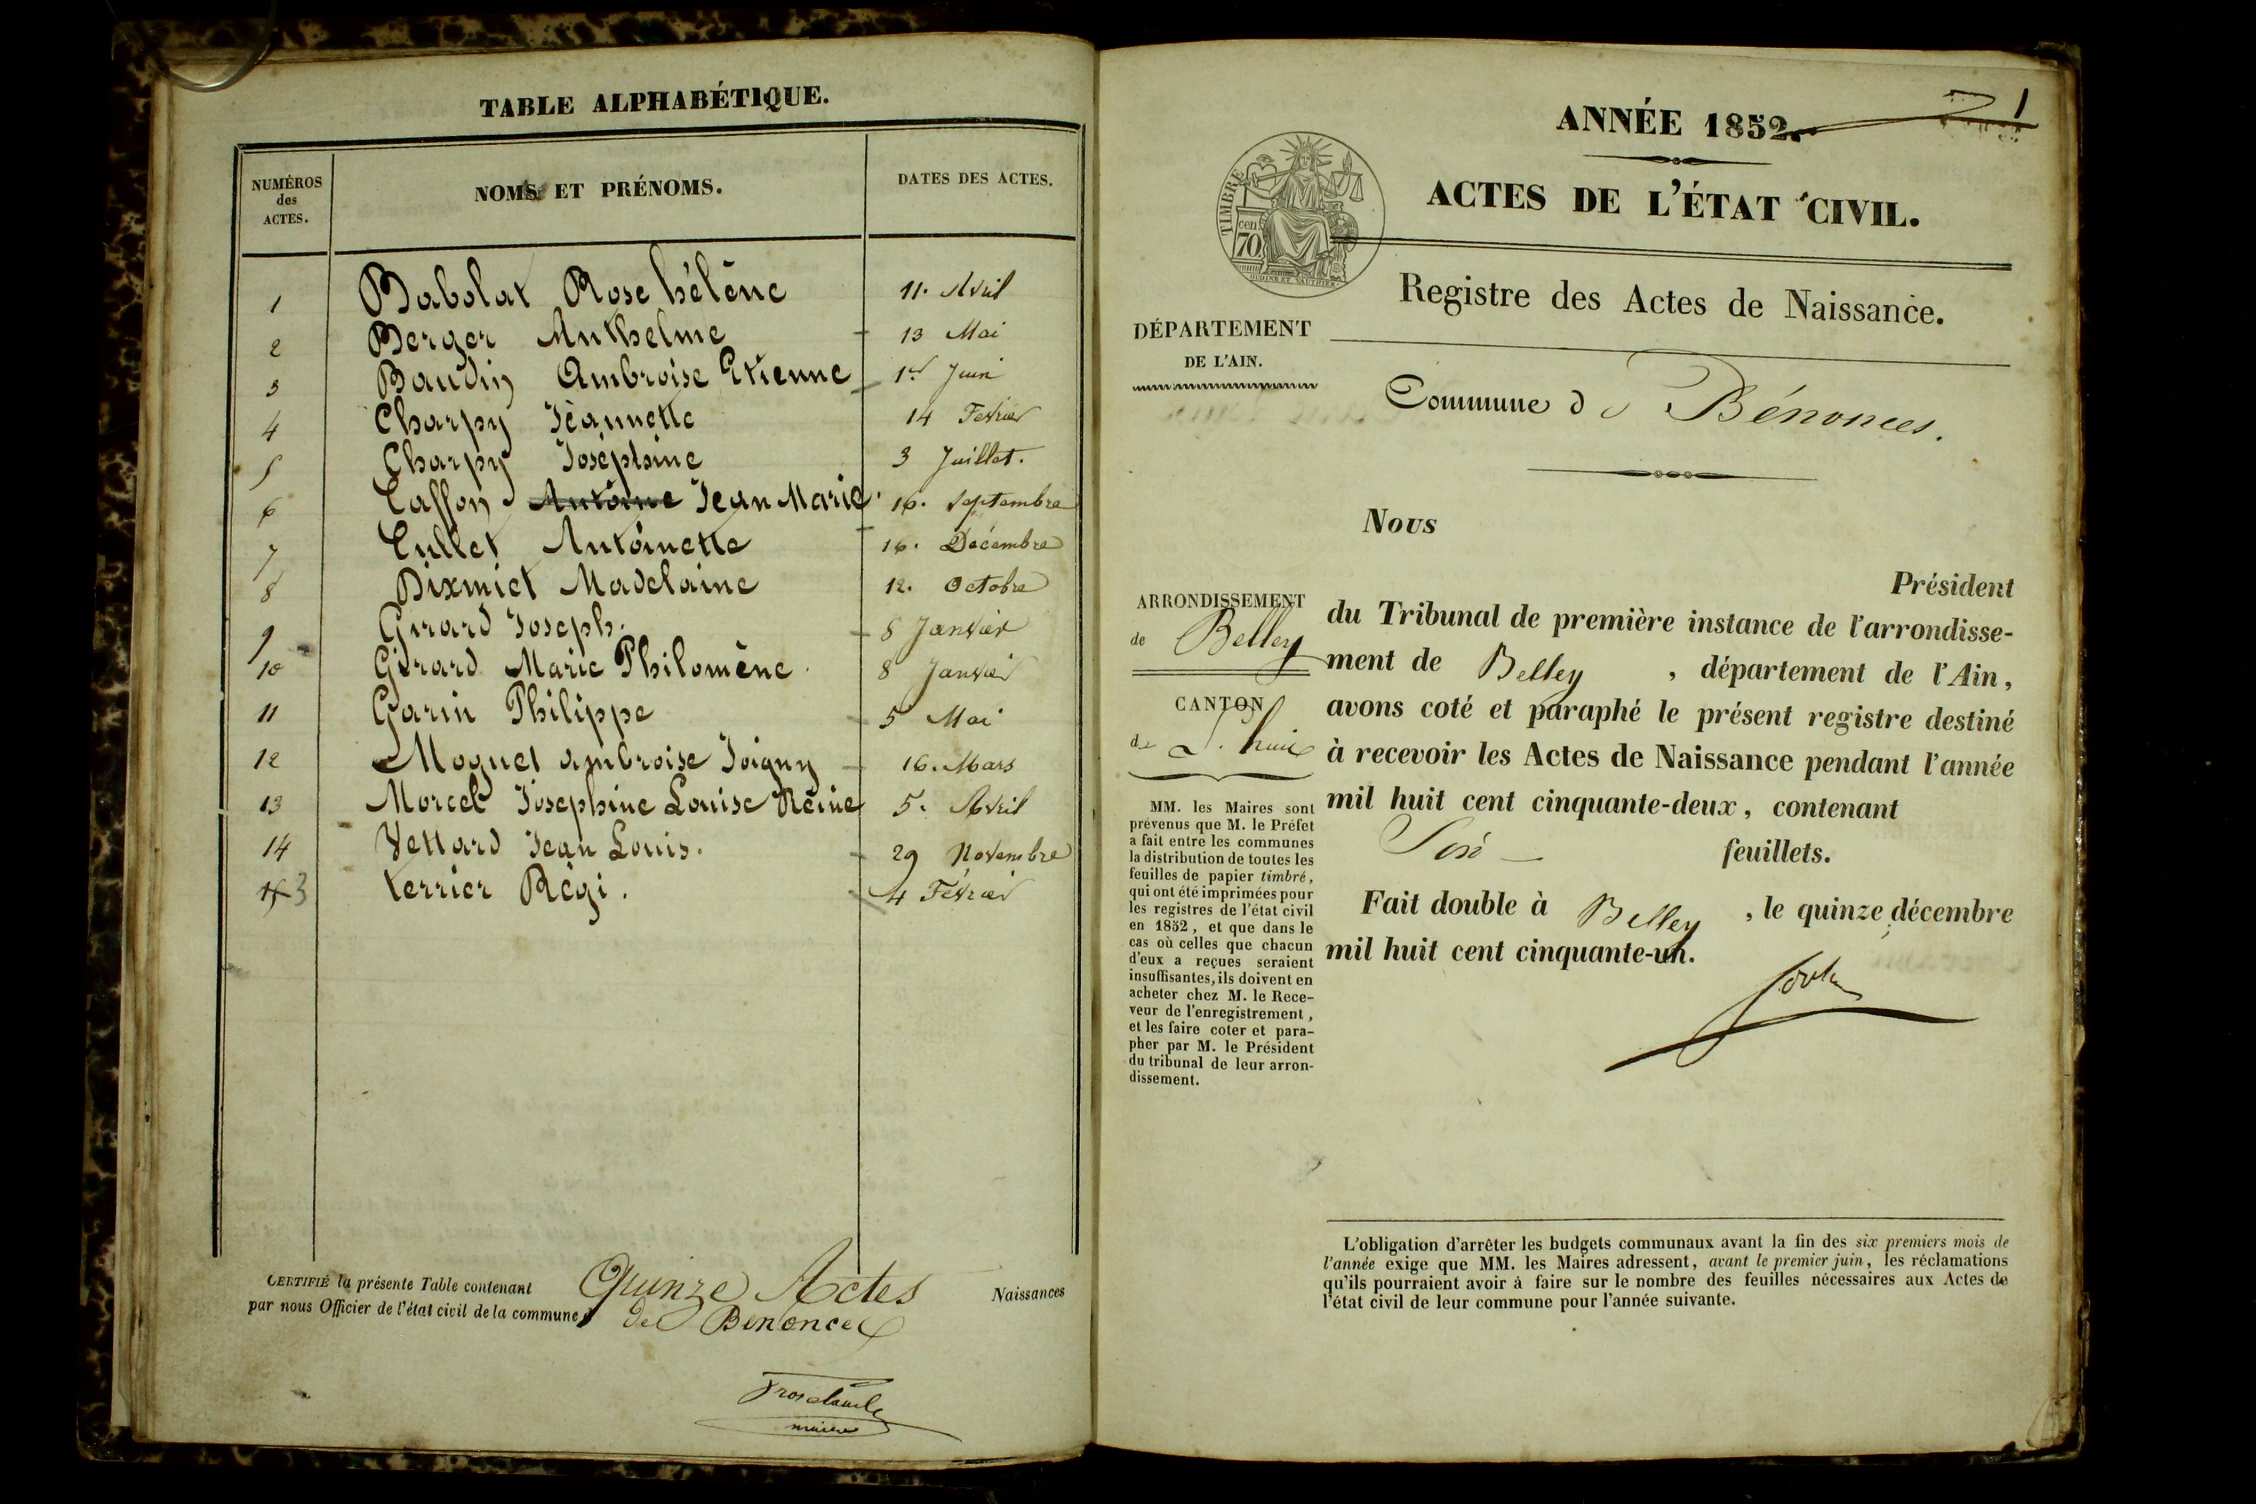 TABLE ALPHABÉTIQUE.
NUMÉROS des ACTES. NOMS ET PRÉNOMS. DATES DES ACTES.
1 Babolat Rose hélène 11. Avril
2 Berger Anthelme 13 Mai
3 Baudin Ambroise Etienne 1er Juin
4 Charpy Jéannette 14 Fevrier
5 Charpy Joséphine 3 Juillet.
6 Caffon Antoine Jean Marie 16. Septembre
7 Cullet Antoinette 16. Décembre
8 Dixmiet Madelaine 12. Octobre
9 Girard Joseph. 8 Janvier
10 Girard Marie Philomène 8 Janvier
11 Garin Philippe 5 Mai
12 Moguet ambroise Joigny 16. Mars
13 Morcel Josephine Louise Reine 5. Avril
14 Vettard Jean Louis. 29 Novembre
15 3 terrier Régi. 4 Février
CERTIFIÉ la présente Table contenant Quinze Actes Naissances
par nous Officier de l'état civil de la commune de Benonces
maire
1
ANNÉE 1852.
ACTES DE L'ÉTAT CIVIL.
TIMBRE
70 cen
Registre des Actes de Naissance.
DÉPARTEMENT
DE L'AIN.
Commune d e Bénonces.
ARRONDISSEMENT
de Belley
CANTON
de L'huis
MM. les Maires sont
prévenus que M. le Préfet
a fait entre les communes
la distribution de toutes les
feuilles de papier timbré,
qui ont été imprimées pour
les registres de l'état civil
en 1852, et que dans le
cas où celles que chacun
d'eux a reçues seraient
insuffisantes, ils doivent en
acheter chez M. le Rece-
veur de l'enregistrement,
et les faire coter et para-
pher par M. le Président
du tribunal de leur arron-
dissement.
Nous
Président
du Tribunal de première instance de l'arrondisse-
ment de Belley , département de l'Ain,
avons coté et paraphé le présent registre destiné
à recevoir les Actes de Naissance pendant l'année
mil huit cent cinquante-deux, contenant
feuillets.
Fait double à Belley , le quinze décembre
mil huit cent cinquante-un.
L'obligation d'arrêter les budgets communaux avant la fin des six premiers mois de
l'année exige que MM. les Maires adressent, avant le premier juin, les réclamations
qu'ils pourraient avoir à faire sur le nombre des feuilles nécessaires aux Actes de
l'état civil de leur commune pour l'année suivante.